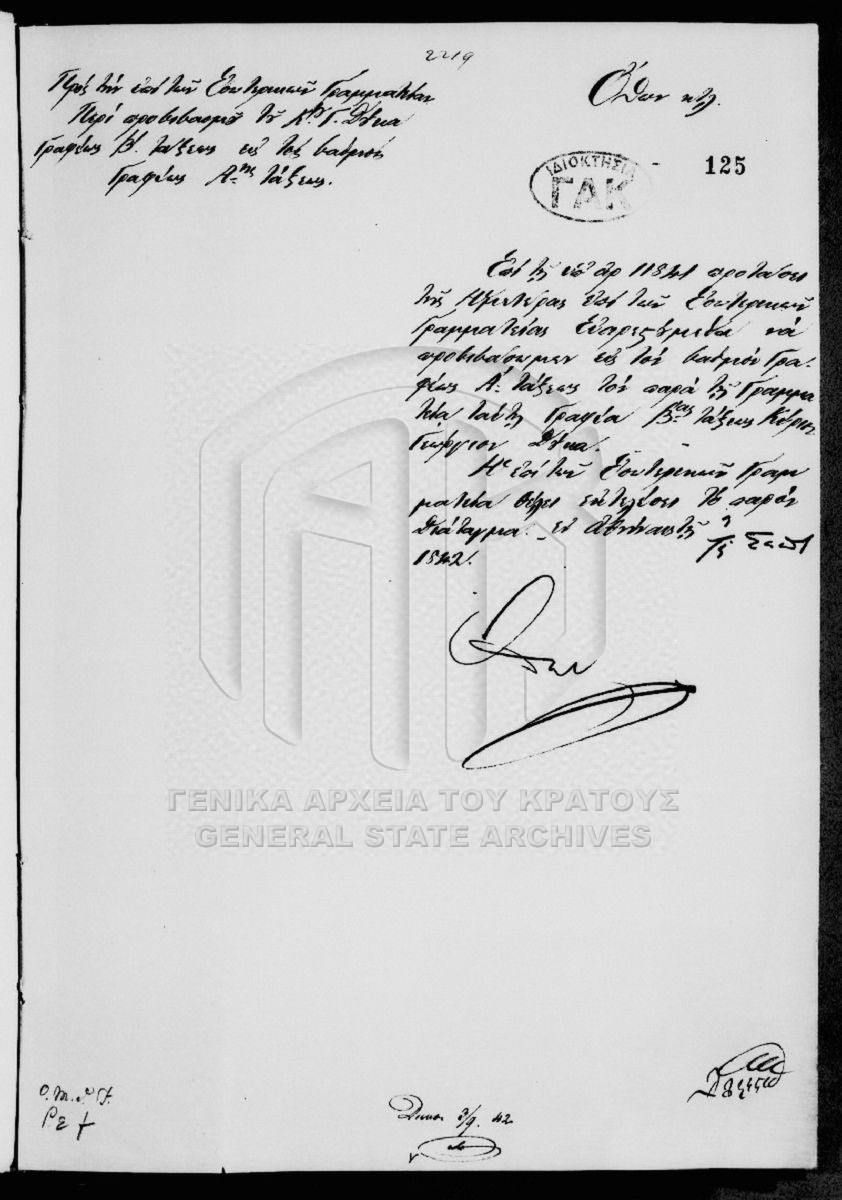 2219
Πρὸς τὴν ἐπὶ τῶν Ἐσωτερικῶν Γραμματείαν
Περὶ προβιβασμοῦ τοῦ Κου Γ. Δούκα
Γραφέως Βʹ. τάξεως εἰς τὸν βαθμὸν
Γραφέως Αης τάξεως.
Ὄθων κτλ.
ΙΔΙΟΚΤΗΣΙΑ
ΓΑΚ
125
Ἐπὶ τῆς ὑπ ἀρ 11841 προτάσει
τῆς Ἡμετέρας ἐπὶ τῶν Ἐσωτερικῶν
Γραμματείας εὐαρεστούμεθα νὰ
προβιβάσωμεν εἰς τὸν βαθμὸν Γρα-
φέως Αʹ. τάξεως τὸν παρὰ τῇ Γραμμα
τεία ταύτῃ Γραφέα Βας τάξεως Κύριον
Γεώργιον Δούκα.
Ἡ ἐπὶ τῶν Ἐσωτερικῶν Γραμ
ματεία θέλει ἐκτελέσει τὸ παρὸν
Διάταγμα. ἐν Ἀθήναις τῇ Σεπτ
1842.
Ὄθων
ΓΕΝΙΚΑ ΑΡΧΕΙΑ ΤΟΥ ΚΡΑΤΟΥΣ
GENERAL STATE ARCHIVES
3/9. 42